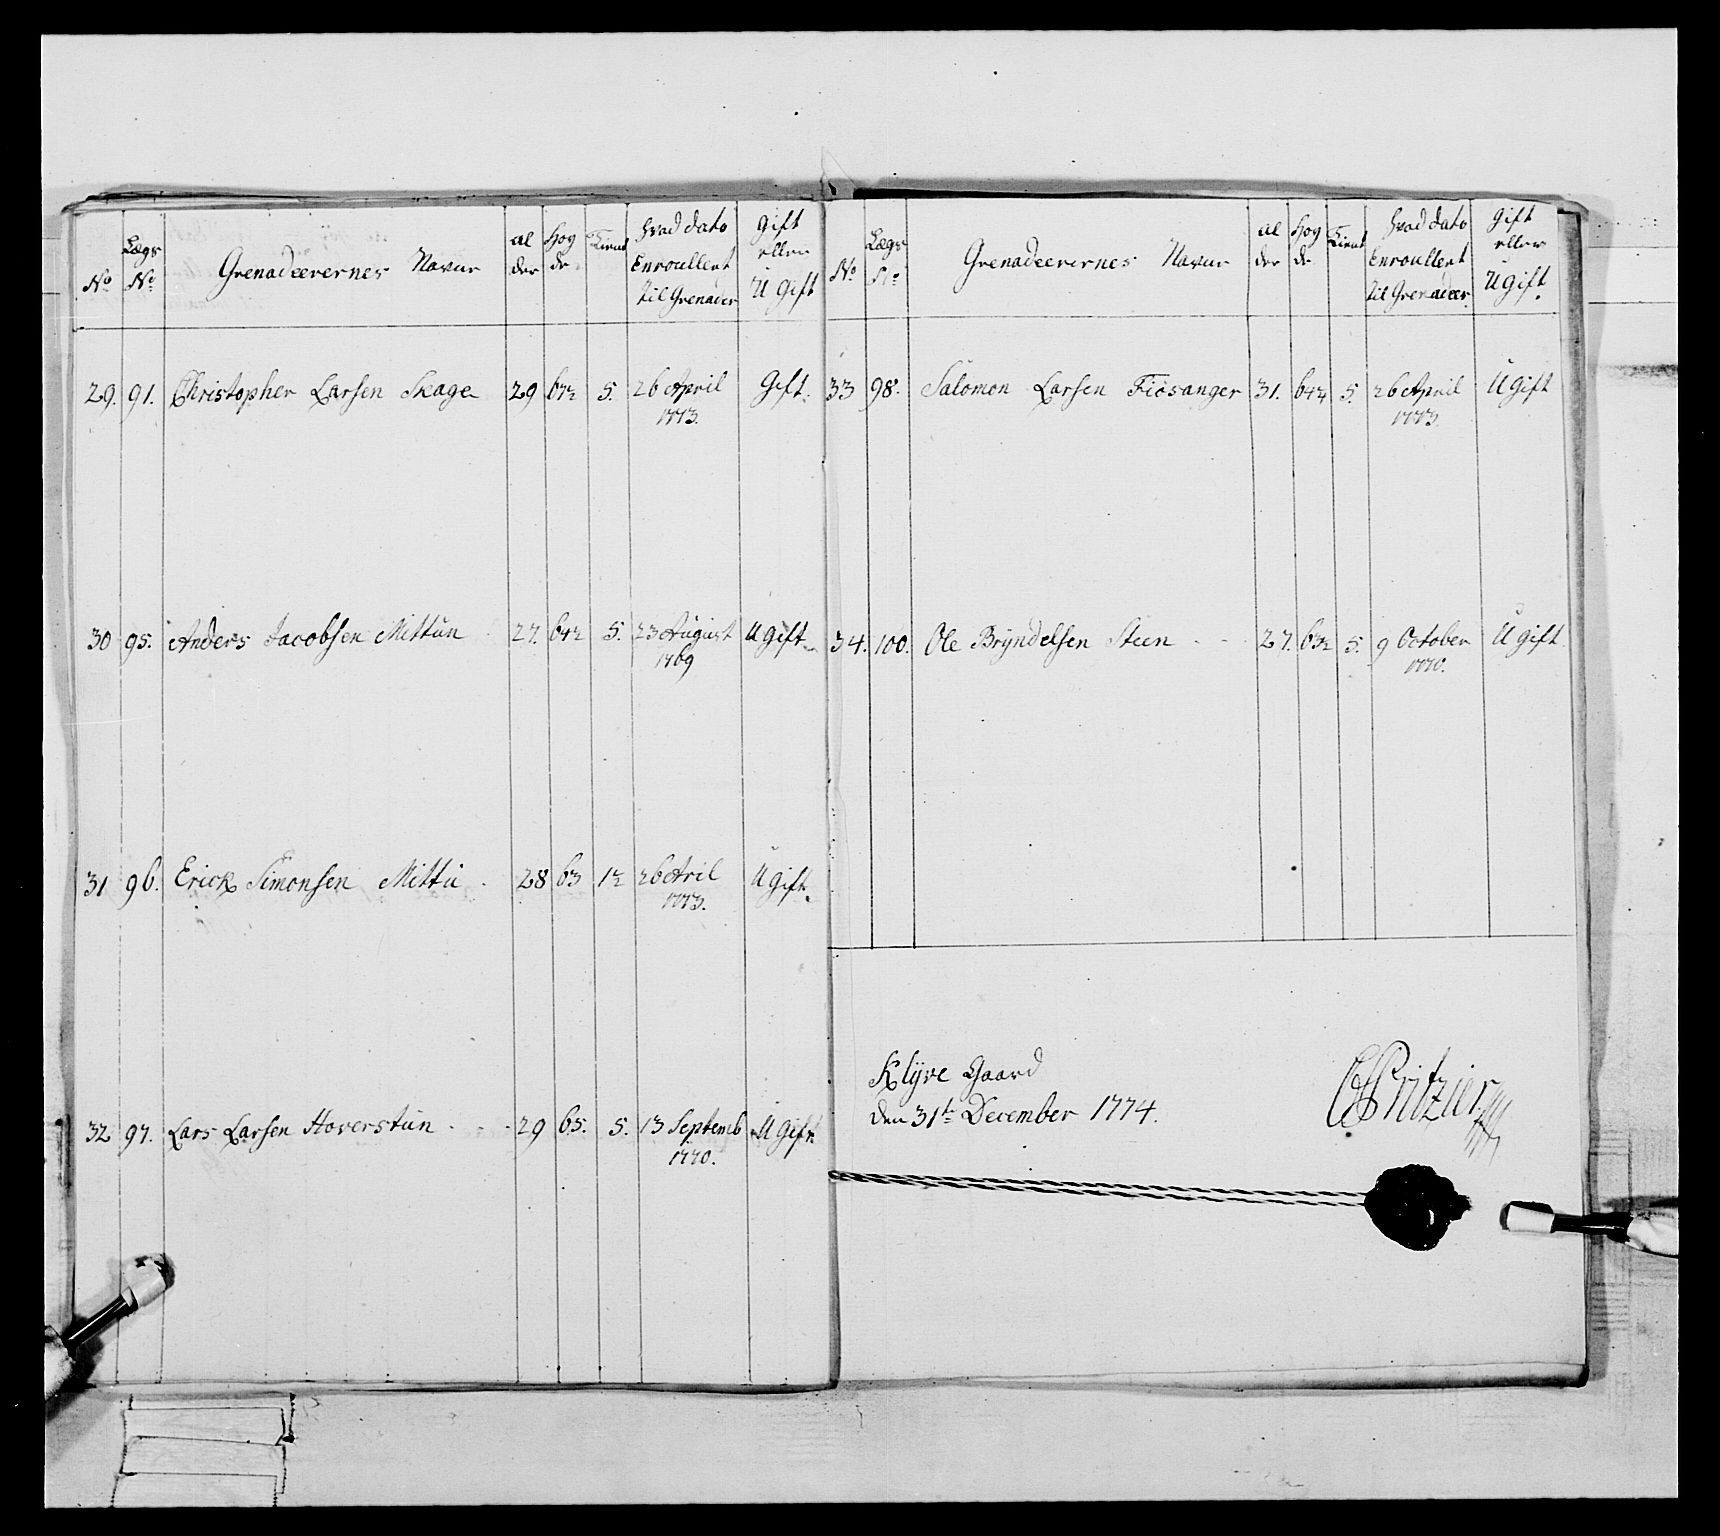 No
Lægs No
Grenadeerernes Navne
Al der
Høg de
Tient
Hvad dato Enroullert til Grenader
Gift eller Ugift
29. 91. Christopher Larsen Skage 29 5. 26 April Gift.
1773.
30 95. Anders Jacobsen Mittün 27. 5. 23 August Ugift
1769
31 96. Erick Simonsen Mittü 28 63 26 Aril Ugift.
1773.
32 97. Lars Larsen Haverstün 29 65. 5. 13 Septemb Ugift
1770.
No
Lægs No
Grenadeerernes Navne
Al der
Høg de
Tient
Hvad dato Enroullert til Grenadeer
Gift eller Ugift.
33 98. Salomon Larsen Fiösanger 31. 5. 26 April Ugift
1773.
34. 100. Ole Bryndelsen Steen 27. 5. 9 October Ugift
1770.
Klÿve Gaard
den 31te December 1774.